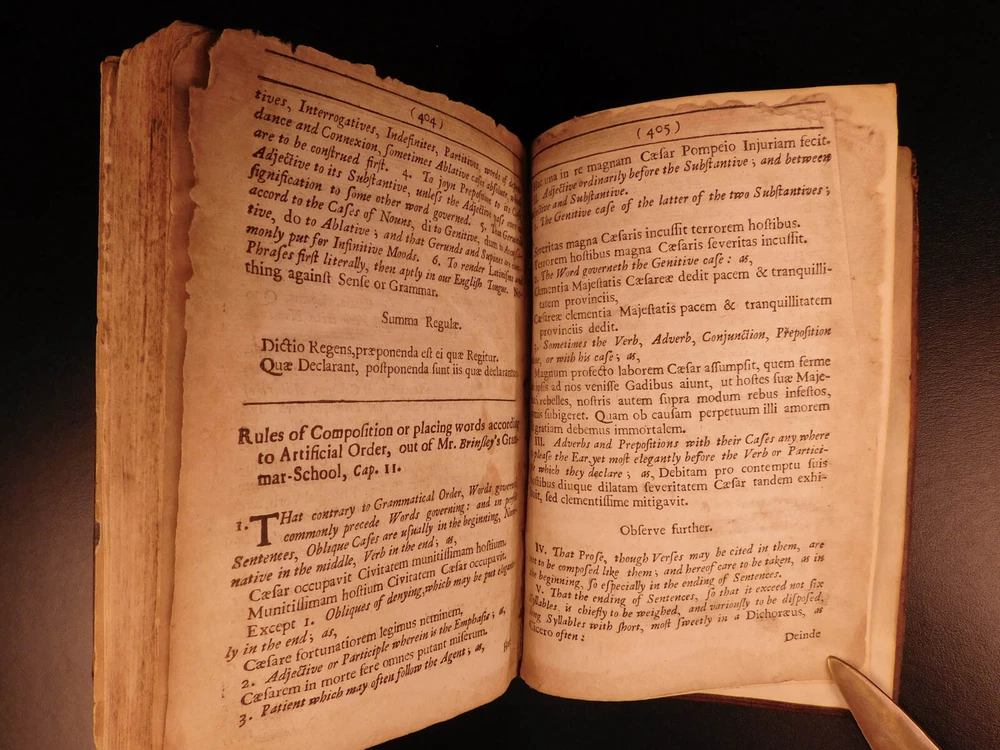 ( 404 )
tives, Interrogatives, Indefinites, Partitives, words of
dance and Connexion, sometimes Ablative cases absolute,
are to be construed first. 4. To joyn Preposition to its
Adjective to its Substantive, unless the Adjective pass
signification to some other word governed. 5. That
accord to the Cases of Nouns, di to Genitive, dum to
tive, do to Ablative; and that Gerunds and Supines
monly put for Infinitive Moods. 6. To render Latinisms and
Phrases first literally, then aptly in our English Tongue.
thing against Sense or Grammar.
Summa Regulæ.
Dictio Regens, præponenda est ei quæ Regitur.
Quæ Declarant, postponenda sunt iis quæ declarantur
Rules of Composition or placing words according
to Artificial Order, out of Mr. Brinsley's
mar-School, Cap. 11.
1. THat contrary to Grammatical Order, Words
commonly precede Words governing: and in
Sentences, Oblique Cases are usually in the beginning,
native in the middle, Verb in the end; as,
Cæsar occupavit Civitatem munitissimam hostium.
Munitissimam hostium Civitatem Cæsar occupavit.
Except 1. Obliques of denying, which may be put
ly in the end; as,
Cæsare fortunatiorem legimus neminem,
2. Adjective or Participle wherein is the Emphasis; as,
Cæsarem in morte fere omnes putant miserum.
3. Patient which may often follow the Agent; as,
( 405 )
una in re magnam Cæsar Pompeio Injuriam fecit.
Adjective ordinarily before the Substantive; and between
and Substantive.
The Genitive case of the latter of the two Substantives;
Severitas magna Cæsaris incussit terrorem hostibus.
Terrorem hostibus magna Cæsaris severitas incussit.
The Word governeth the Genitive case: as,
Clementia Majestatis Cæsareæ dedit pacem & tranquilli-
tatem provinciis,
Cæsareæ clementia Majestatis pacem & tranquillitatem
provinciis dedit.
Sometimes the Verb, Adverb, Conjunction, Preposition
or with his case; as,
Magnum profecto laborem Cæsar assumpsit, quem ferme
ipsis ad nos venisse Gadibus aiunt, ut hostes suæ Maje-
rebelles, nostris autem supra modum rebus infestos,
subigeret. Quam ob causam perpetuum illi amorem
gratiam debemus immortalem.
III. Adverbs and Prepositions with their Cases any where
please the Ear, yet most elegantly before the Verb or Partici-
which they declare; as, Debitam pro contemptu suis
hostibus diuque dilatam severitatem Cæsar tandem exhi-
buit, sed clementissime mitigavit.
Observe further.
IV. That Prose, though Verses may be cited in them, are
not to be composed like them; and hereof care to be taken, as in
the beginning, so especially in the ending of Sentences.
V. That the ending of Sentences, so that it exceed not six
Syllables, is chiefly to be weighed, and variously to be disposed,
long Syllables with short, most sweetly in a Dichoræus, as
Cicero often:
Deinde